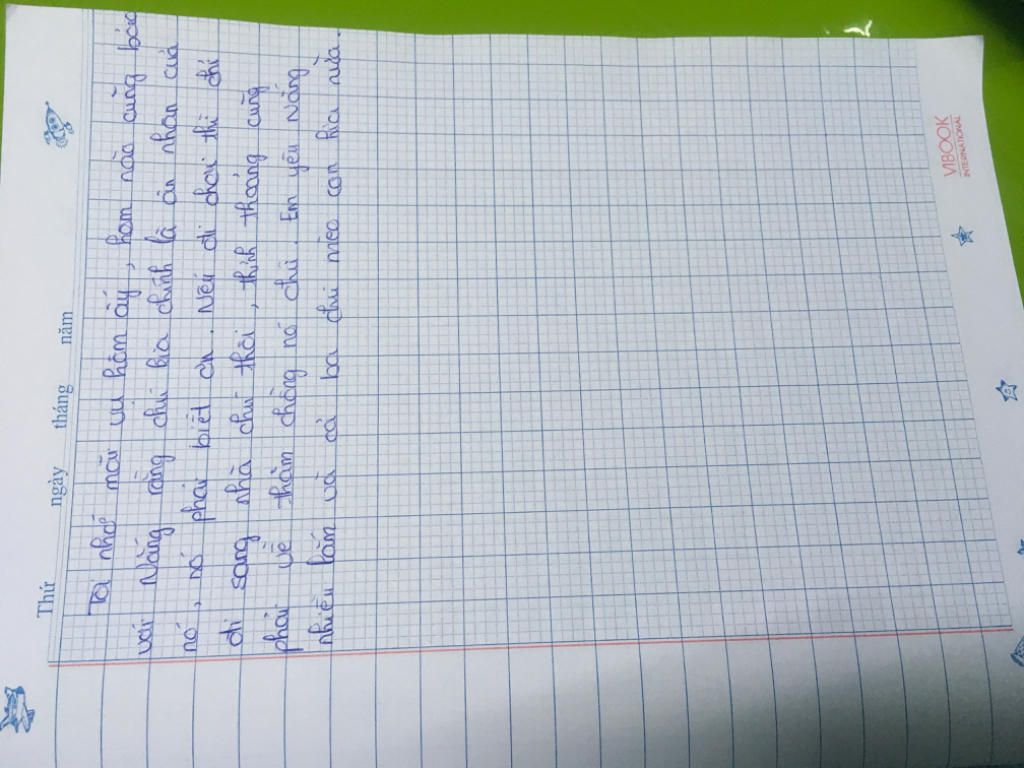 Thứ ngày tháng năm
Tôi nhớ mãi vụ hôm ấy, hôm nào cũng bảo
với Nắng rằng chú kia chính là ân nhân của
nó, nó phải biết ơn. Nếu đi chơi thì chỉ
đi sang nhà chú thôi, thỉnh thoảng cũng
phải về thăm chồng nó chứ. Em yêu Nắng
nhiều lắm và cả ba chú mèo con kia nữa.
VIBOOK
INTERNATIONAL